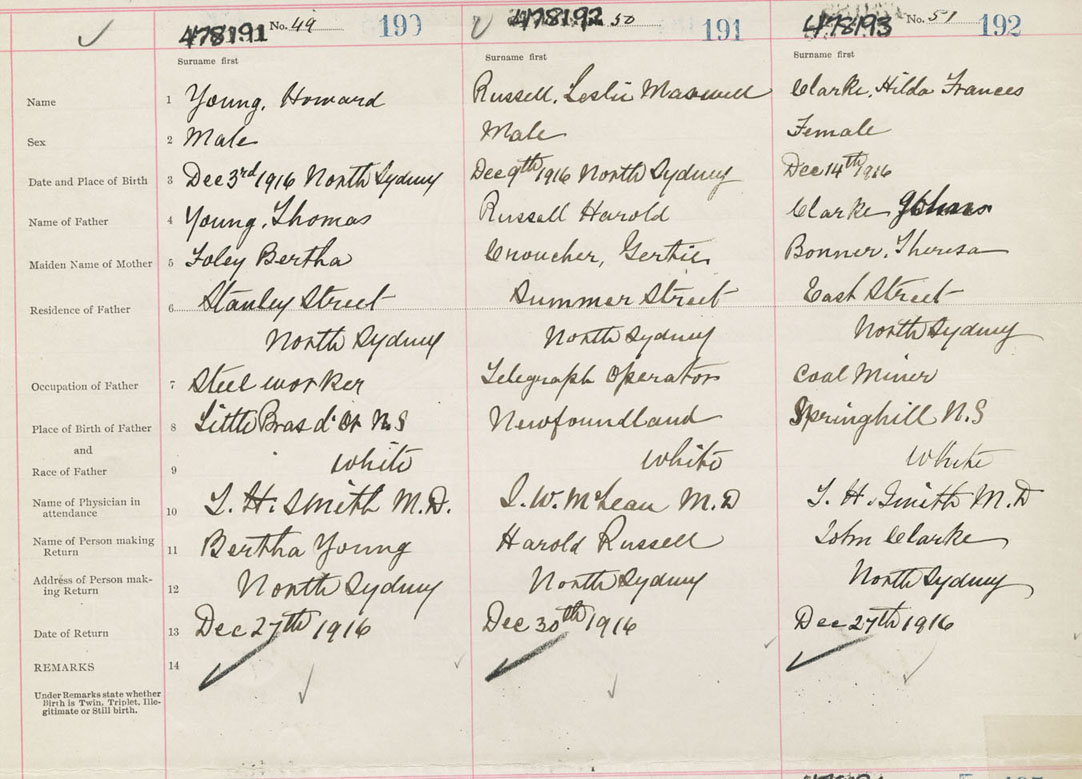 478191 No. 49 190 478192 50 191 478193 No. 51 192
Surname first Surname first Surname first
Name 1 Young, Howard Russell, Leslie Maxwell Clarke, Hilda Frances
Sex 2 Male Male Female
Date and Place of Birth 3 Dec 3rd 1916 North Sydney Dec 9th 1916 North Sydney Dec 14th 1916
Name of Father 4 Young, Thomas Russell Harold Clarke
Maiden Name of Mother 5 Foley Bertha Croucher, Gertie Bonner, Theresa
Residence of Father 6 Stanley Street Summer Street East Street
North Sydney North Sydney North Sydney
Occupation of Father 7 Steel worker Telegraph Operator Coal Miner
Place of Birth of Father 8 Little Bras d'Or N.S Newfoundland Springhill N.S
and
Race of Father 9 White White White
Name of Physician in
attendance 10 L. H. Smith M.D. M.D L. H. Smith M.D
Name of Person making
Return 11 Bertha Young Harold Russell John Clarke
Address of Person mak-
ing Return 12 North Sydney North Sydney North Sydney
Date of Return 13 Dec 27th 1916 Dec 30th 1916 Dec 27th 1916
REMARKS 14
Under Remarks state whether
Birth is Twin, Triplet, Ille-
gitimate or Still birth.